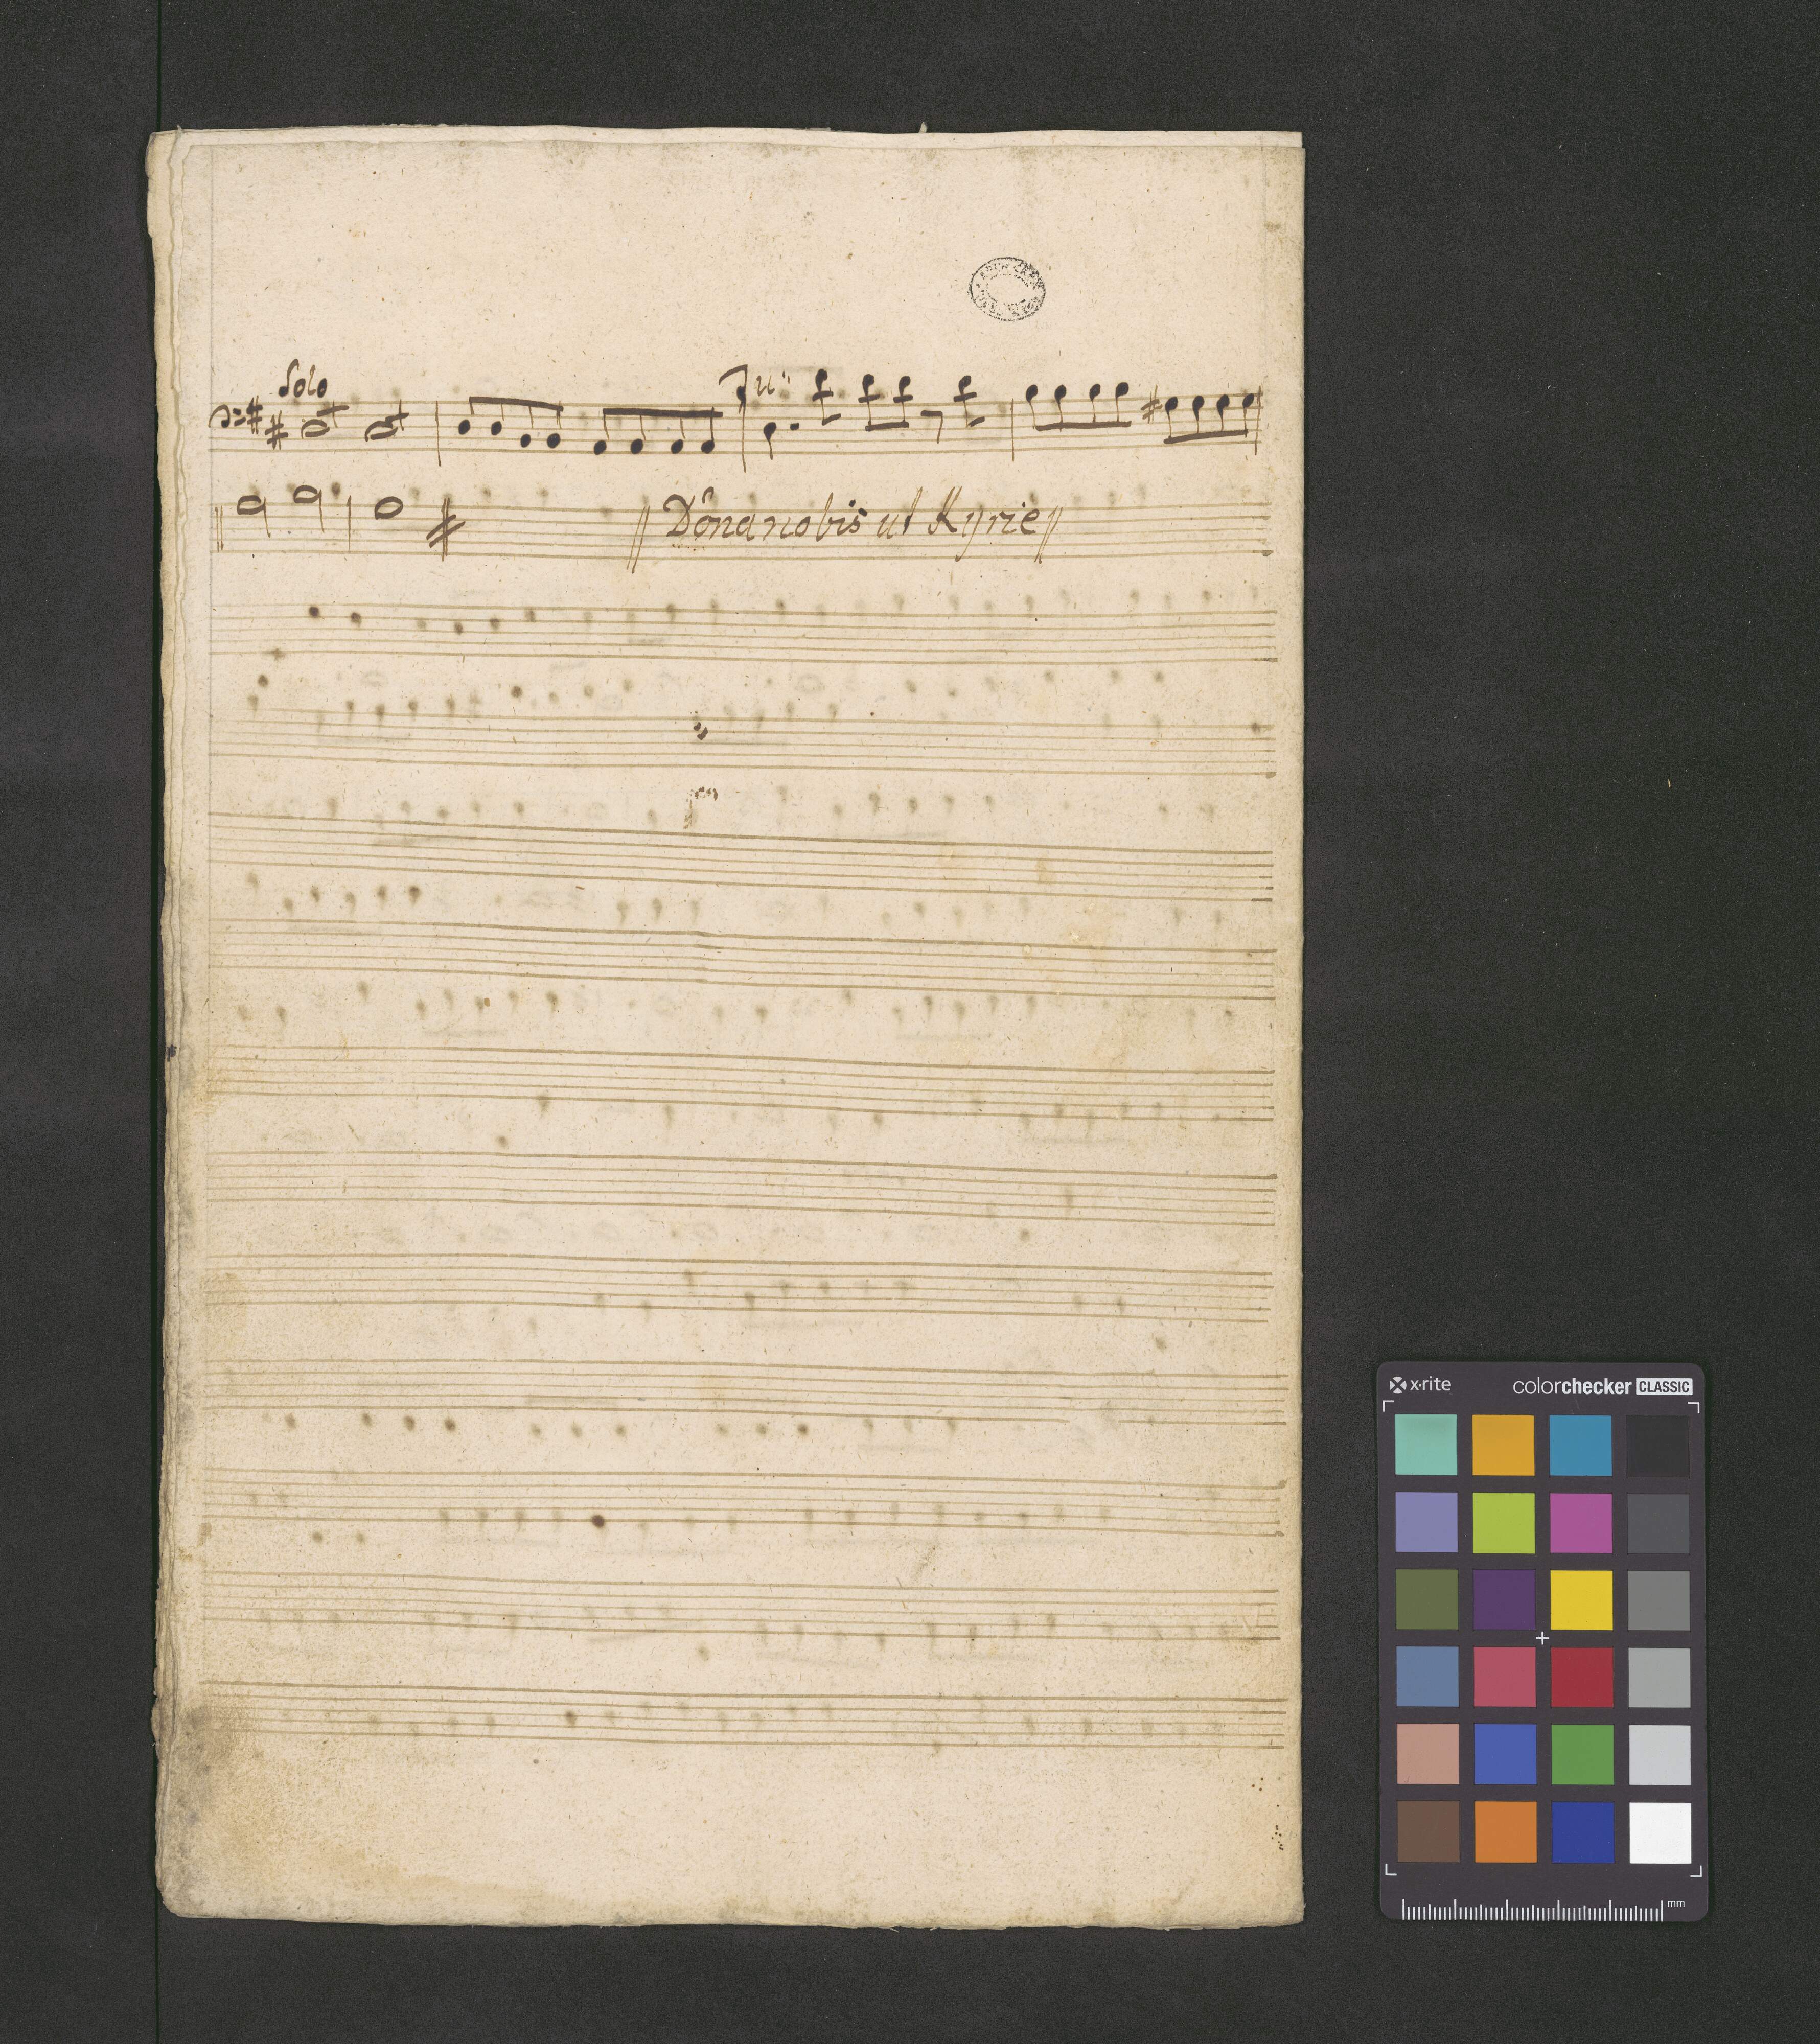 Solo
Tuti
Dona nobis ut Kyrie
x·rite colorchecker CLASSIC
mm